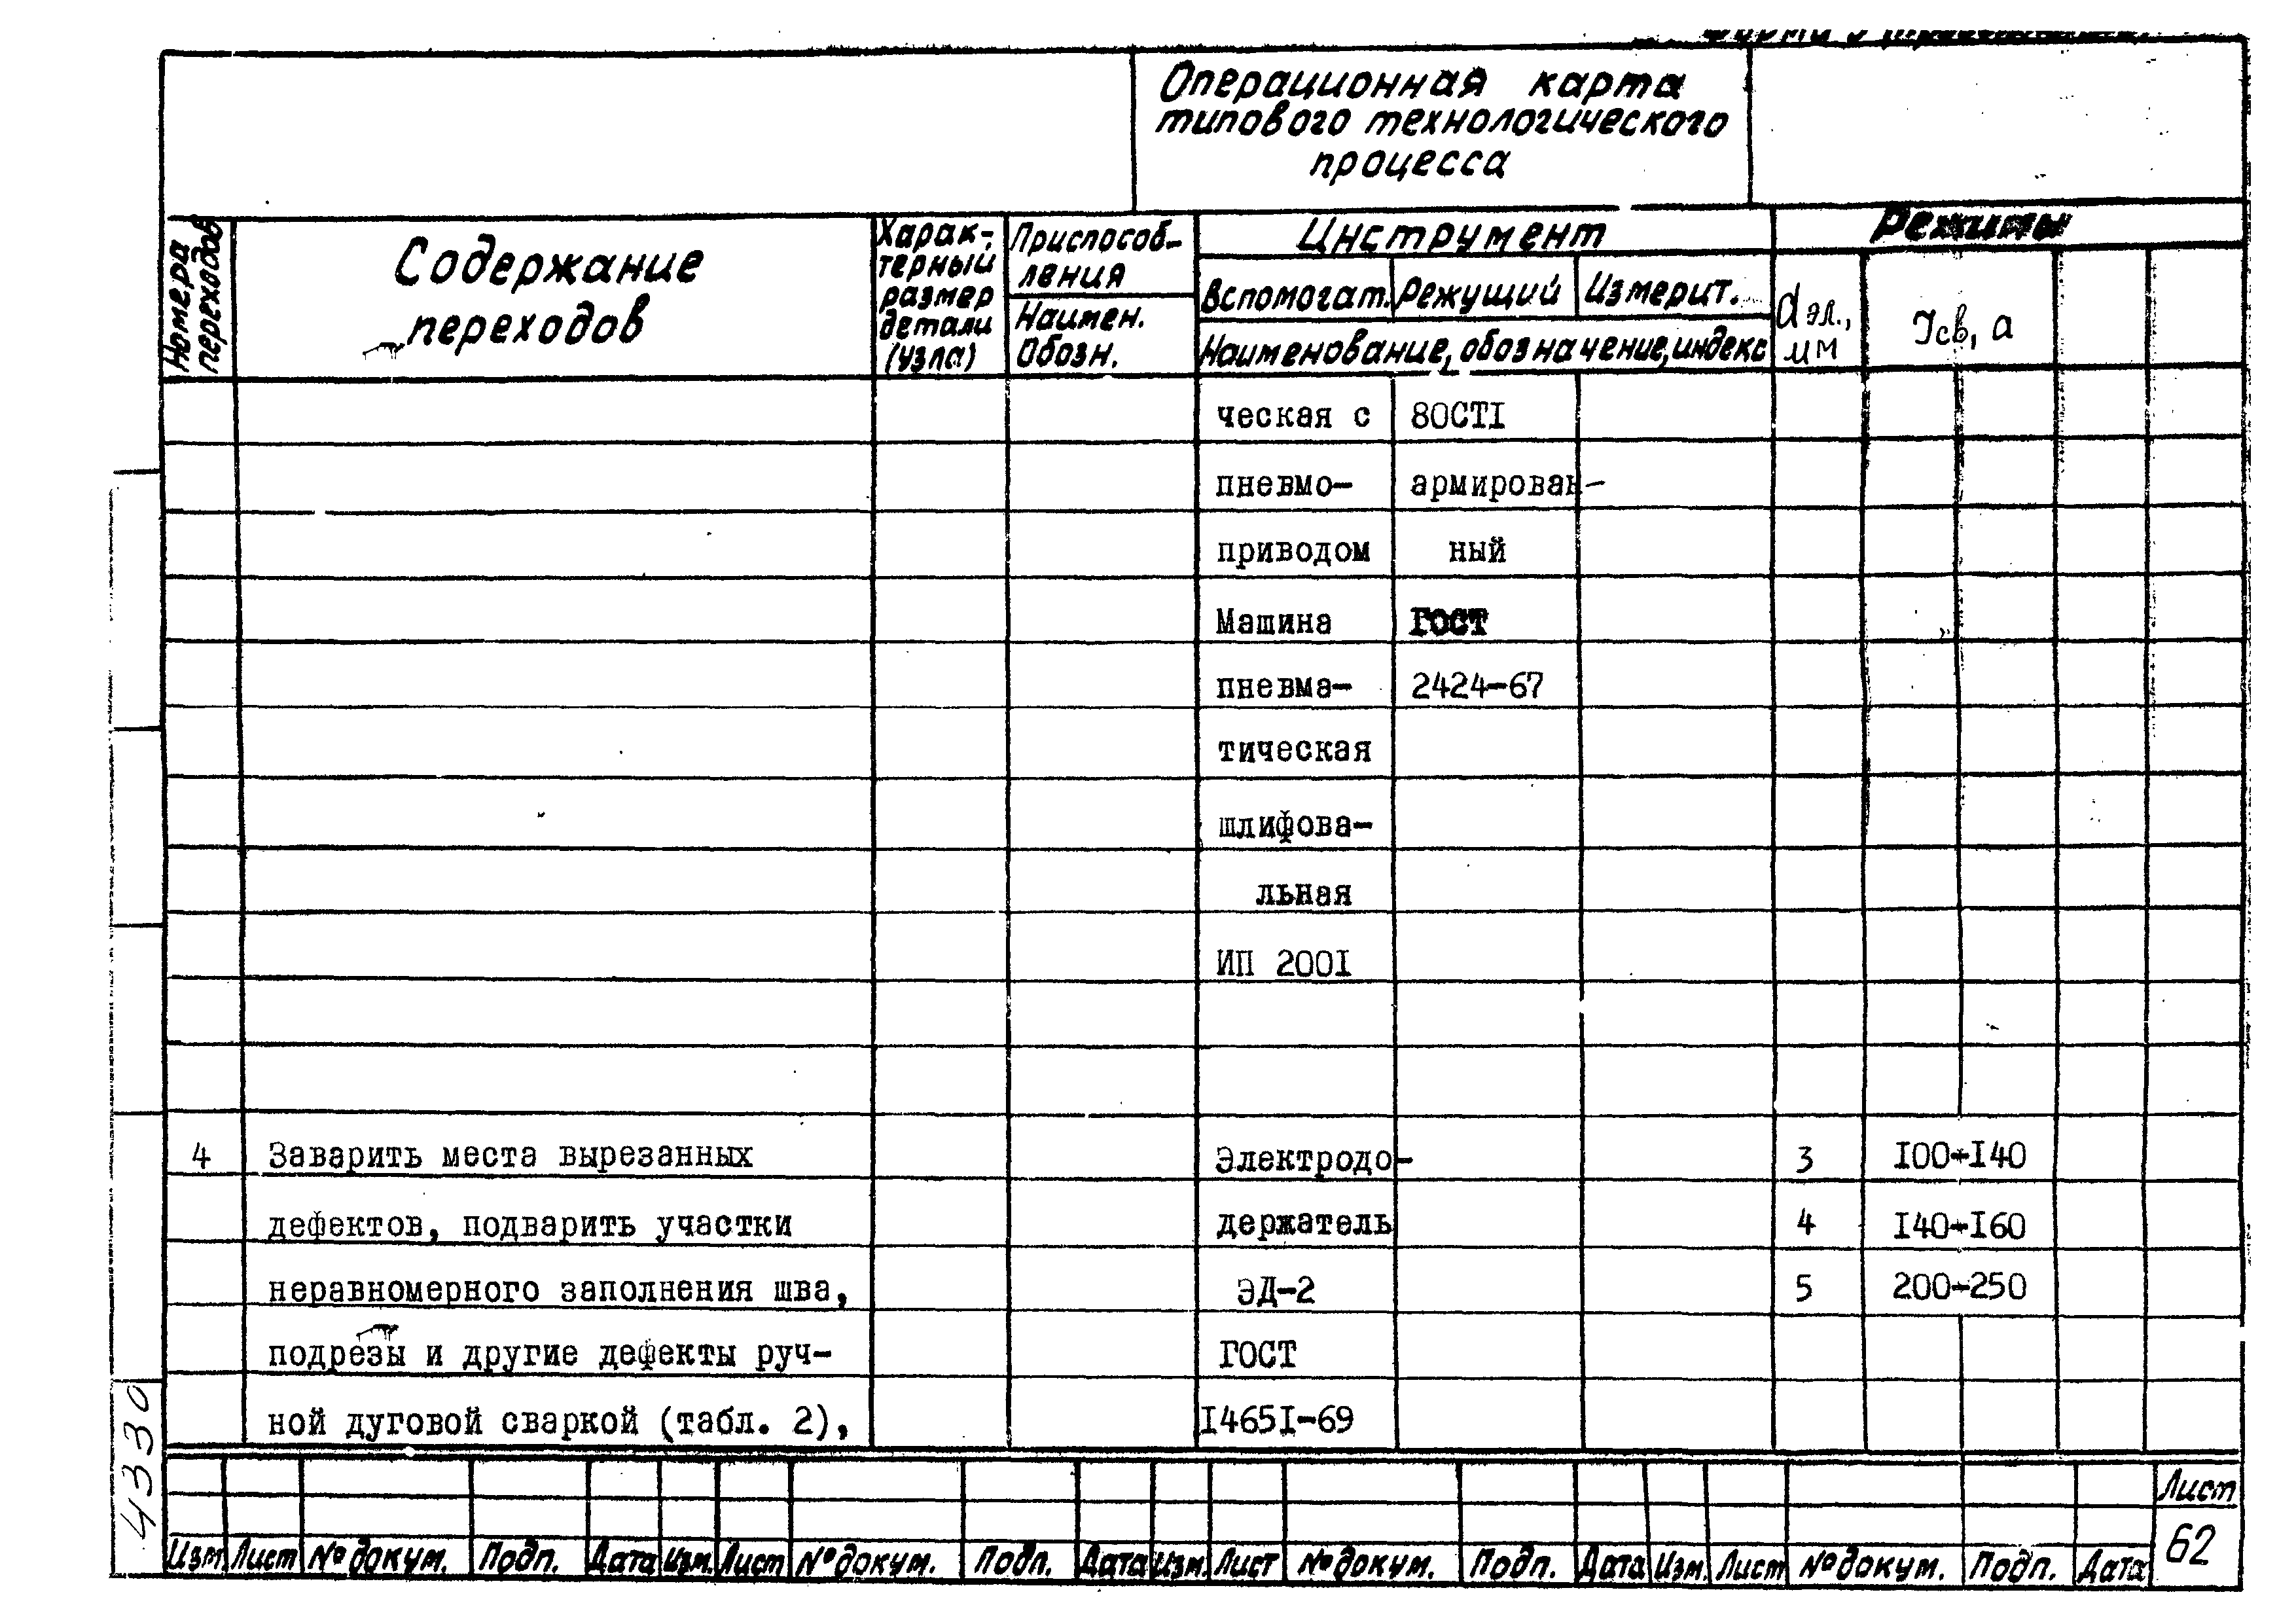 Операционная карта
типового технологического
процесса
Номера
переходов
Содержание
переходов
Харак-
терный
размер
детали
(узла)
Приспособ-
ления
Наимен.
Обозн.
Инструмент
Вспомогат. Режущий Измерит.
Наименование, обозначение, индекс
Режимы
dэл.,
мм
Iсв, а
ческая с 80СТI
пневмо- армирован-
приводом ный
Машина ГОСТ
пневма- 2424-67
тическая
шлифова-
льная
ИП 200I
4 Заварить места вырезанных Электродо- 3 I00÷I40
дефектов, подварить участки держатель 4 I40÷I60
неравномерного заполнения шва, ЭД-2 5 200÷250
подрезы и другие дефекты руч- ГОСТ
ной дуговой сваркой (табл. 2), I465I-69
4330
Лист
62
Изм Лист № докум. Подп. Дата Изм. Лист № докум. Подп. Дата Изм. Лист № докум. Подп. Дата Изм. Лист № докум. Подп. Дата